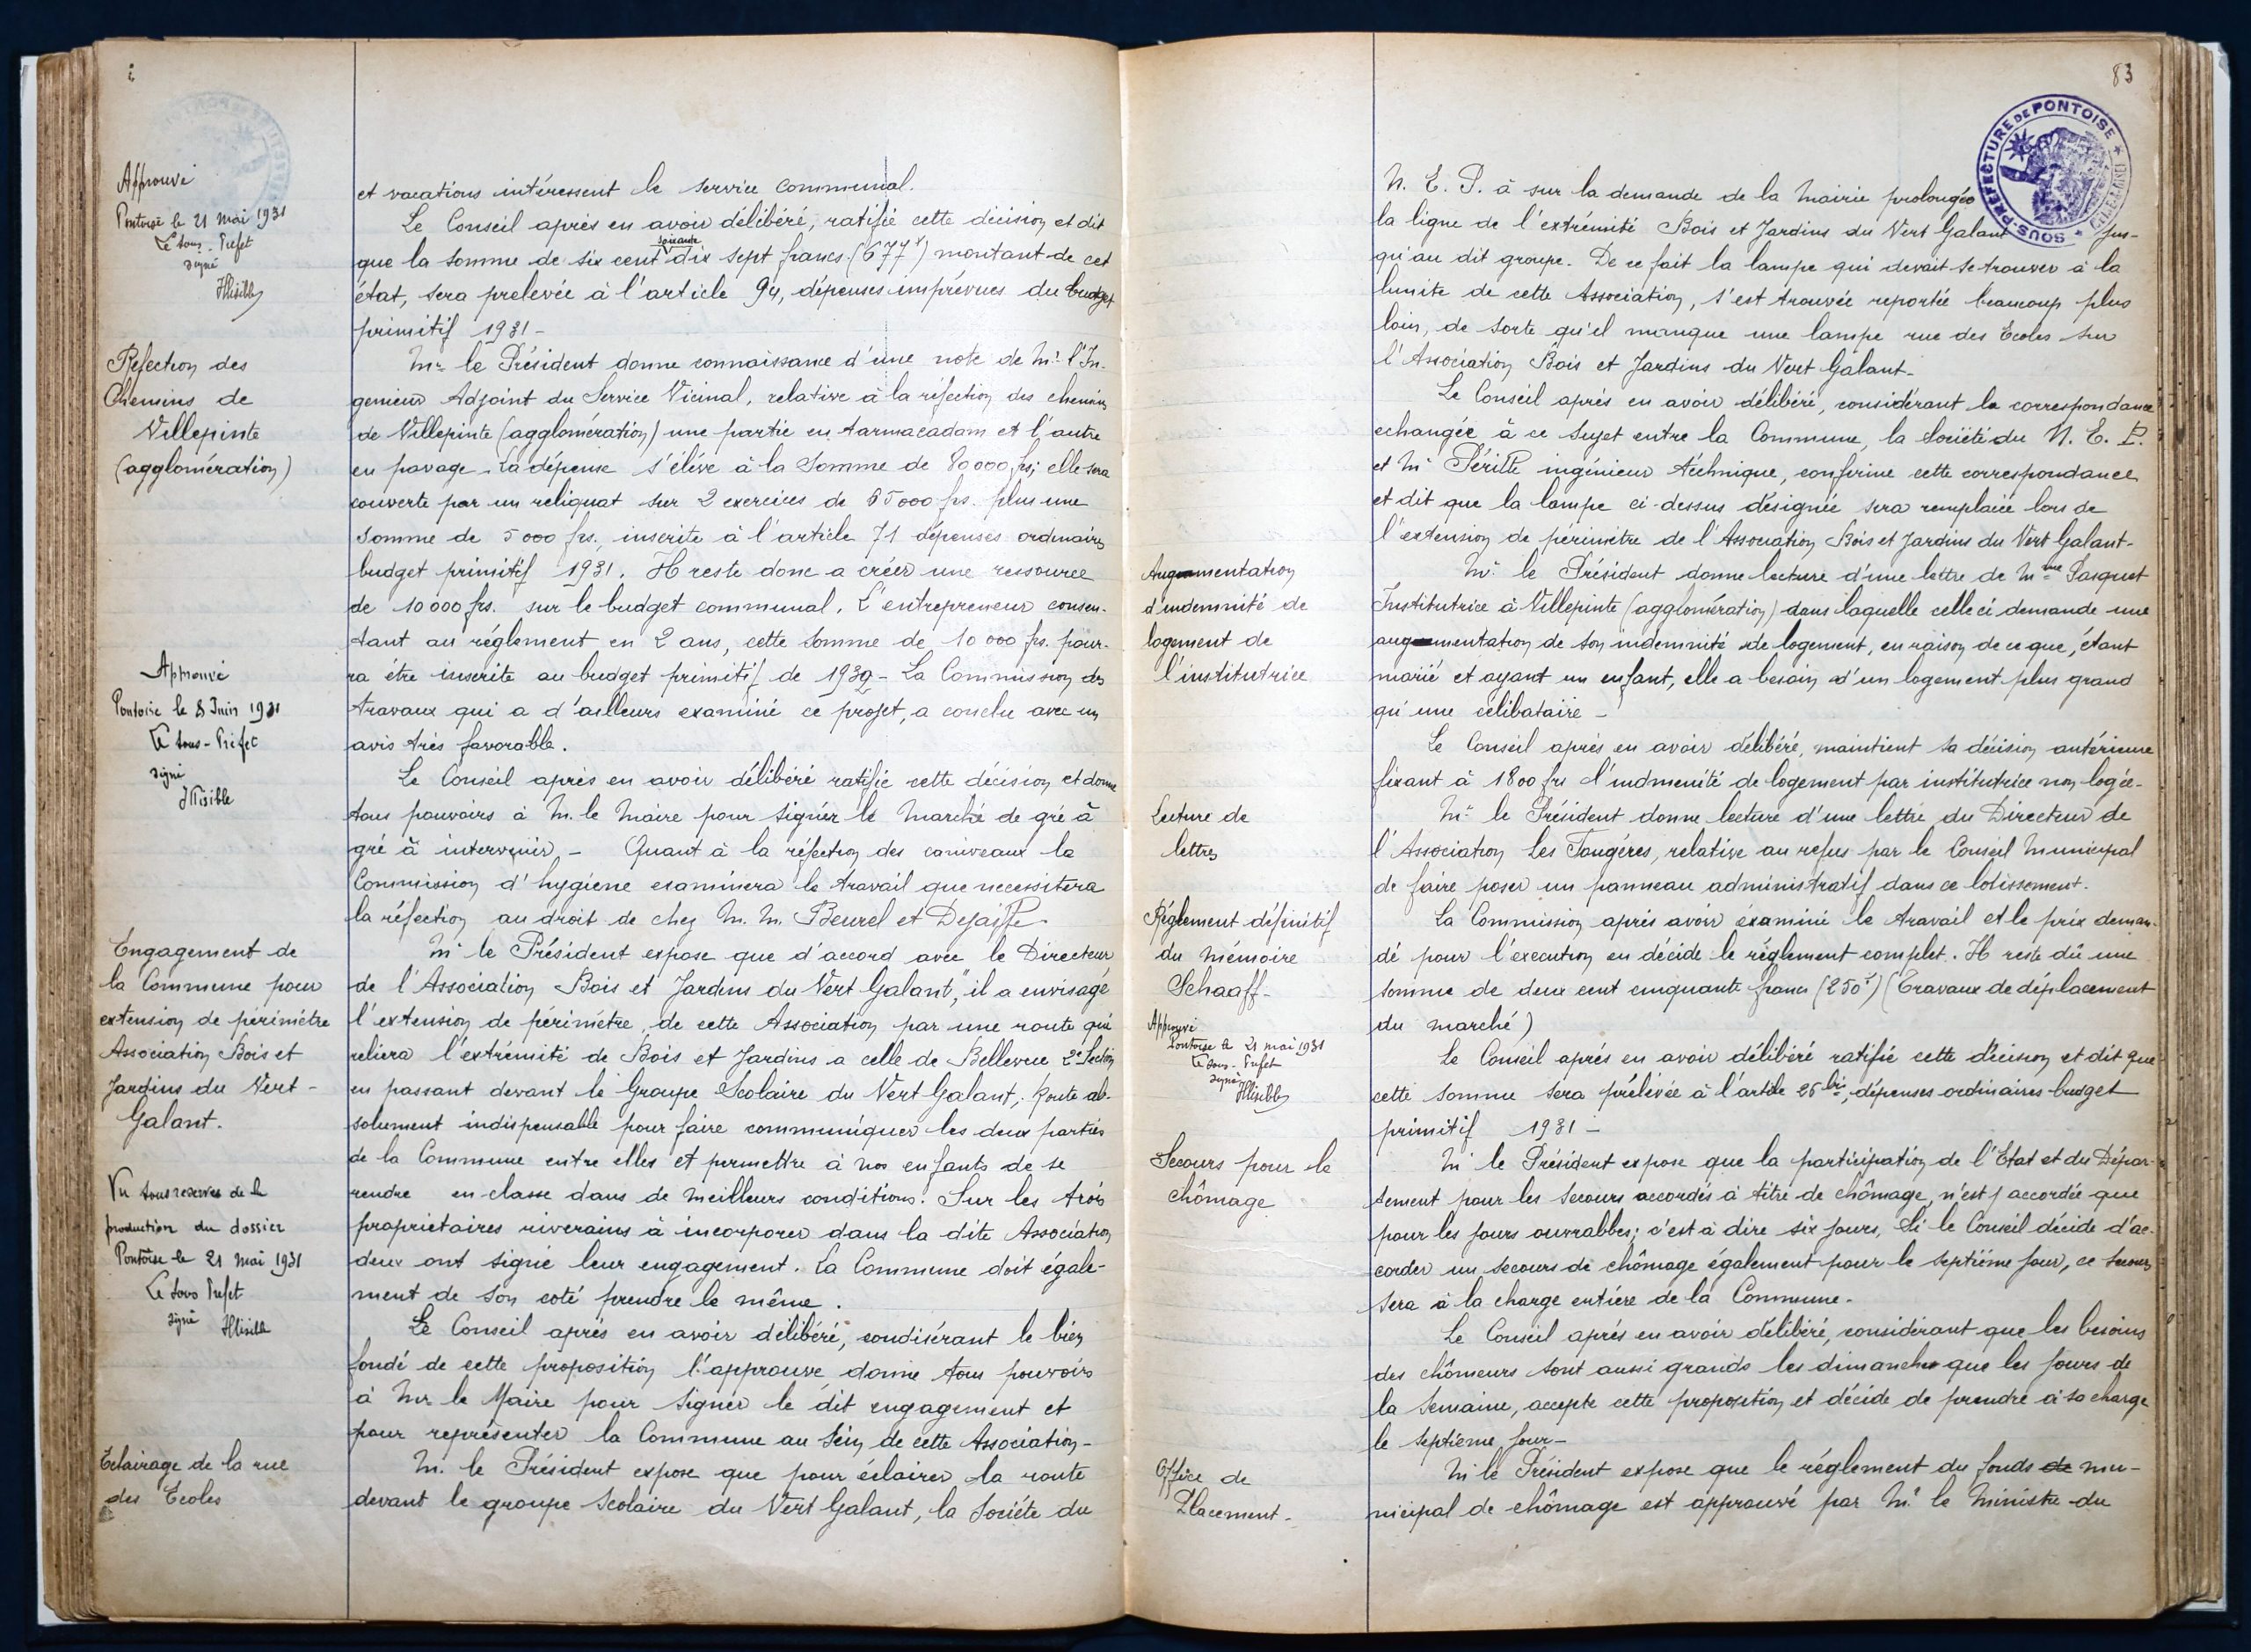 Approuvé
Pontoise le 21 mai 1931
Le sous-Prefet
signé
Illisible
et vacations intéressent le service communal.
Le Conseil après en avoir délibéré, ratifie cette décision et dit
que la somme de six cent soixante dix sept francs (677f) montant de cet
état, sera prelevée à l'article 94, dépenses imprévues du budget
primitif 1931-
Réfection des
Chemins de
Villepinte
(agglomération)
Mr le Président donne connaissance d'une note de Mr l'In-
genieur Adjoint du Service Vicinal, relative à la réfection des chemins
de Villepinte (agglomération) une partie en tarmacadam et l'autre
en pavage. La dépense s'élève à la somme de 80000 frs; elle sera
couverte par un reliquat sur 2 exercices de 65000 frs. plus une
somme de 5000 frs., inscrite à l'article 71 dépenses ordinaires
budget primitif 1931. Il reste donc a créer une ressource
de 10000 frs. sur le budget communal. L'entrepreneur consen-
tant au réglement en 2 ans, cette somme de 10 000 frs. pour-
ra être inscrite au budget primitif de 1932 - La Commission des
travaux qui a d'ailleurs examiné ce projet, a conclu avec un
avis très favorable.
Approuvé
Pontoise le 8 Juin 1931
Le sous-Préfet
signé
Illisible
Le Conseil après en avoir délibéré ratifie cette décision et donne
tous pouvoirs à M. le Maire pour signer le marché de gré à
gré à intervenir - Quant à la réfection des caniveaux la
Commission d'hygiene examinera le travail que necessitera
la réfection au droit de chez M. M. Beurel et Dejaiffe
Engagement de
la Commune pour
extension de périmétre
Association Bois et
Jardins du Vert-
Galant.
Mr le Président expose que d'accord avec le Directeur
de l'Association "Bois et Jardins du Vert Galant", il a envisagé
l'extension de périmétre de cette Association par une route qui
reliera l'extrémité de Bois et Jardins a celle de Bellevue 2e Section
en passant devant le Groupe Scolaire du Vert Galant; Route ab-
solument indispensable pour faire communiquer les deux parties
de la Commune entre elles et permettre à nos enfants de se
rendre en classe dans de meilleurs conditions. Sur les trois
propriétaires riverains à incorporer dans la dite Association
deux ont signé leur engagement. La Commune doit égale-
ment de son coté prendre le même.
Vu sous reserves de la
production du dossier
Pontoise le 21 mai 1931
Le Sous Prefet
signé Illisible
Le Conseil après en avoir délibéré, condisérant le bien
fondé de cette proposition l'approuve donne tous pouvoirs
à Mr le Maire pour signer le dit engagement et
pour représenter la Commune au sein de cette Association-
Eclairage de la rue
des Ecoles
M. le Président expose que pour éclairer la route
devant le groupe Scolaire du Vert Galant, la Sociéte du
83
SOUS-PREFECTURE DE PONTOISE
N. E. P. à sur la demande de la Mairie prolongée
la ligne de l'extrémité Bois et Jardins du Vert Galant jus-
qu'au dit groupe. De ce fait la lampe qui devait se trouver à la
limite de cette Association, s'est trouvée reportée beaucoup plus
loin, de sorte qu'il manque une lampe rue des Ecoles sur
l'Association Bois et Jardins du Vert Galant-
Le Conseil après en avoir délibéré, considérant la correspondance
echangée à ce sujet entre la Commune, la Société du N. E. P.
et Mr ingénieur téchnique, confirme cette correspondance
et dit que la lampe ci-dessus désignée sera remplacée lors de
l'extension de perimétre de l'Association Bois et Jardins du Vert Galant-
Augmentation
d'indemnité de
logement de
l'institutrice
Mr le Président donne lecture d'une lettre de Mme Pasquet
Institutrice à Villepinte (agglomération) dans laquelle celle ci demande une
augmentation de son indemnité de logement, en raison de ce que, étant
marié et ayant un enfant, elle a besoin d'un logement plus grand
qu'une célibataire -
Le Conseil après en avoir délibéré, maintient sa décision antérieure
fixant à 1800 frs l'indmenité de logement par institutrice non logée-
Lecture de
lettres
Mr le Président donne lecture d'une lettre du Directeur de
l'Association Les Fougéres, relative au refus par le Conseil Municipal
de faire poser un panneau administratif dans ce lotissement.
Réglement définitif
du mémoire
Schaaff-
La Commission après avoir examiné le travail et le prix deman-
dé pour l'execution en décide le réglement complet. Il reste dû une
somme de deux cent cinquante francs (250f) (Travaux de déplacement
du marché)
Approuvé
Pontoise le 21 mai 1931
Le Sous-Prefet
signé
Illisible
Le Conseil après en avoir délibéré ratifie cette décision et dit que
cette somme sera prélevée à l'article 25 bis, dépenses ordinaires budget
primitif 1931-
Secours pour le
chômage
Mr le Président expose que la participation de l'Etat et du Dépar-
tement pour les secours accordés à titre de chômage, n'est accordée que
pour les jours ouvrables; c'est à dire six jours, Si le Conseil décide d'ac-
corder un secours de chômage également pour le septième jour, ce secours
sera à la charge entière de la Commune.
Le Conseil après en avoir délibéré, considérant que les besoins
des chômeurs sont aussi grands les dimanches que les jours de
la semaine, accepte cette proposition et décide de prendre à sa charge
le septième jour-
Office de
Placement-
Mr le Président expose que le réglement du fonds de mu-
nicipal de chômage est approuvé par Mr le Ministre du